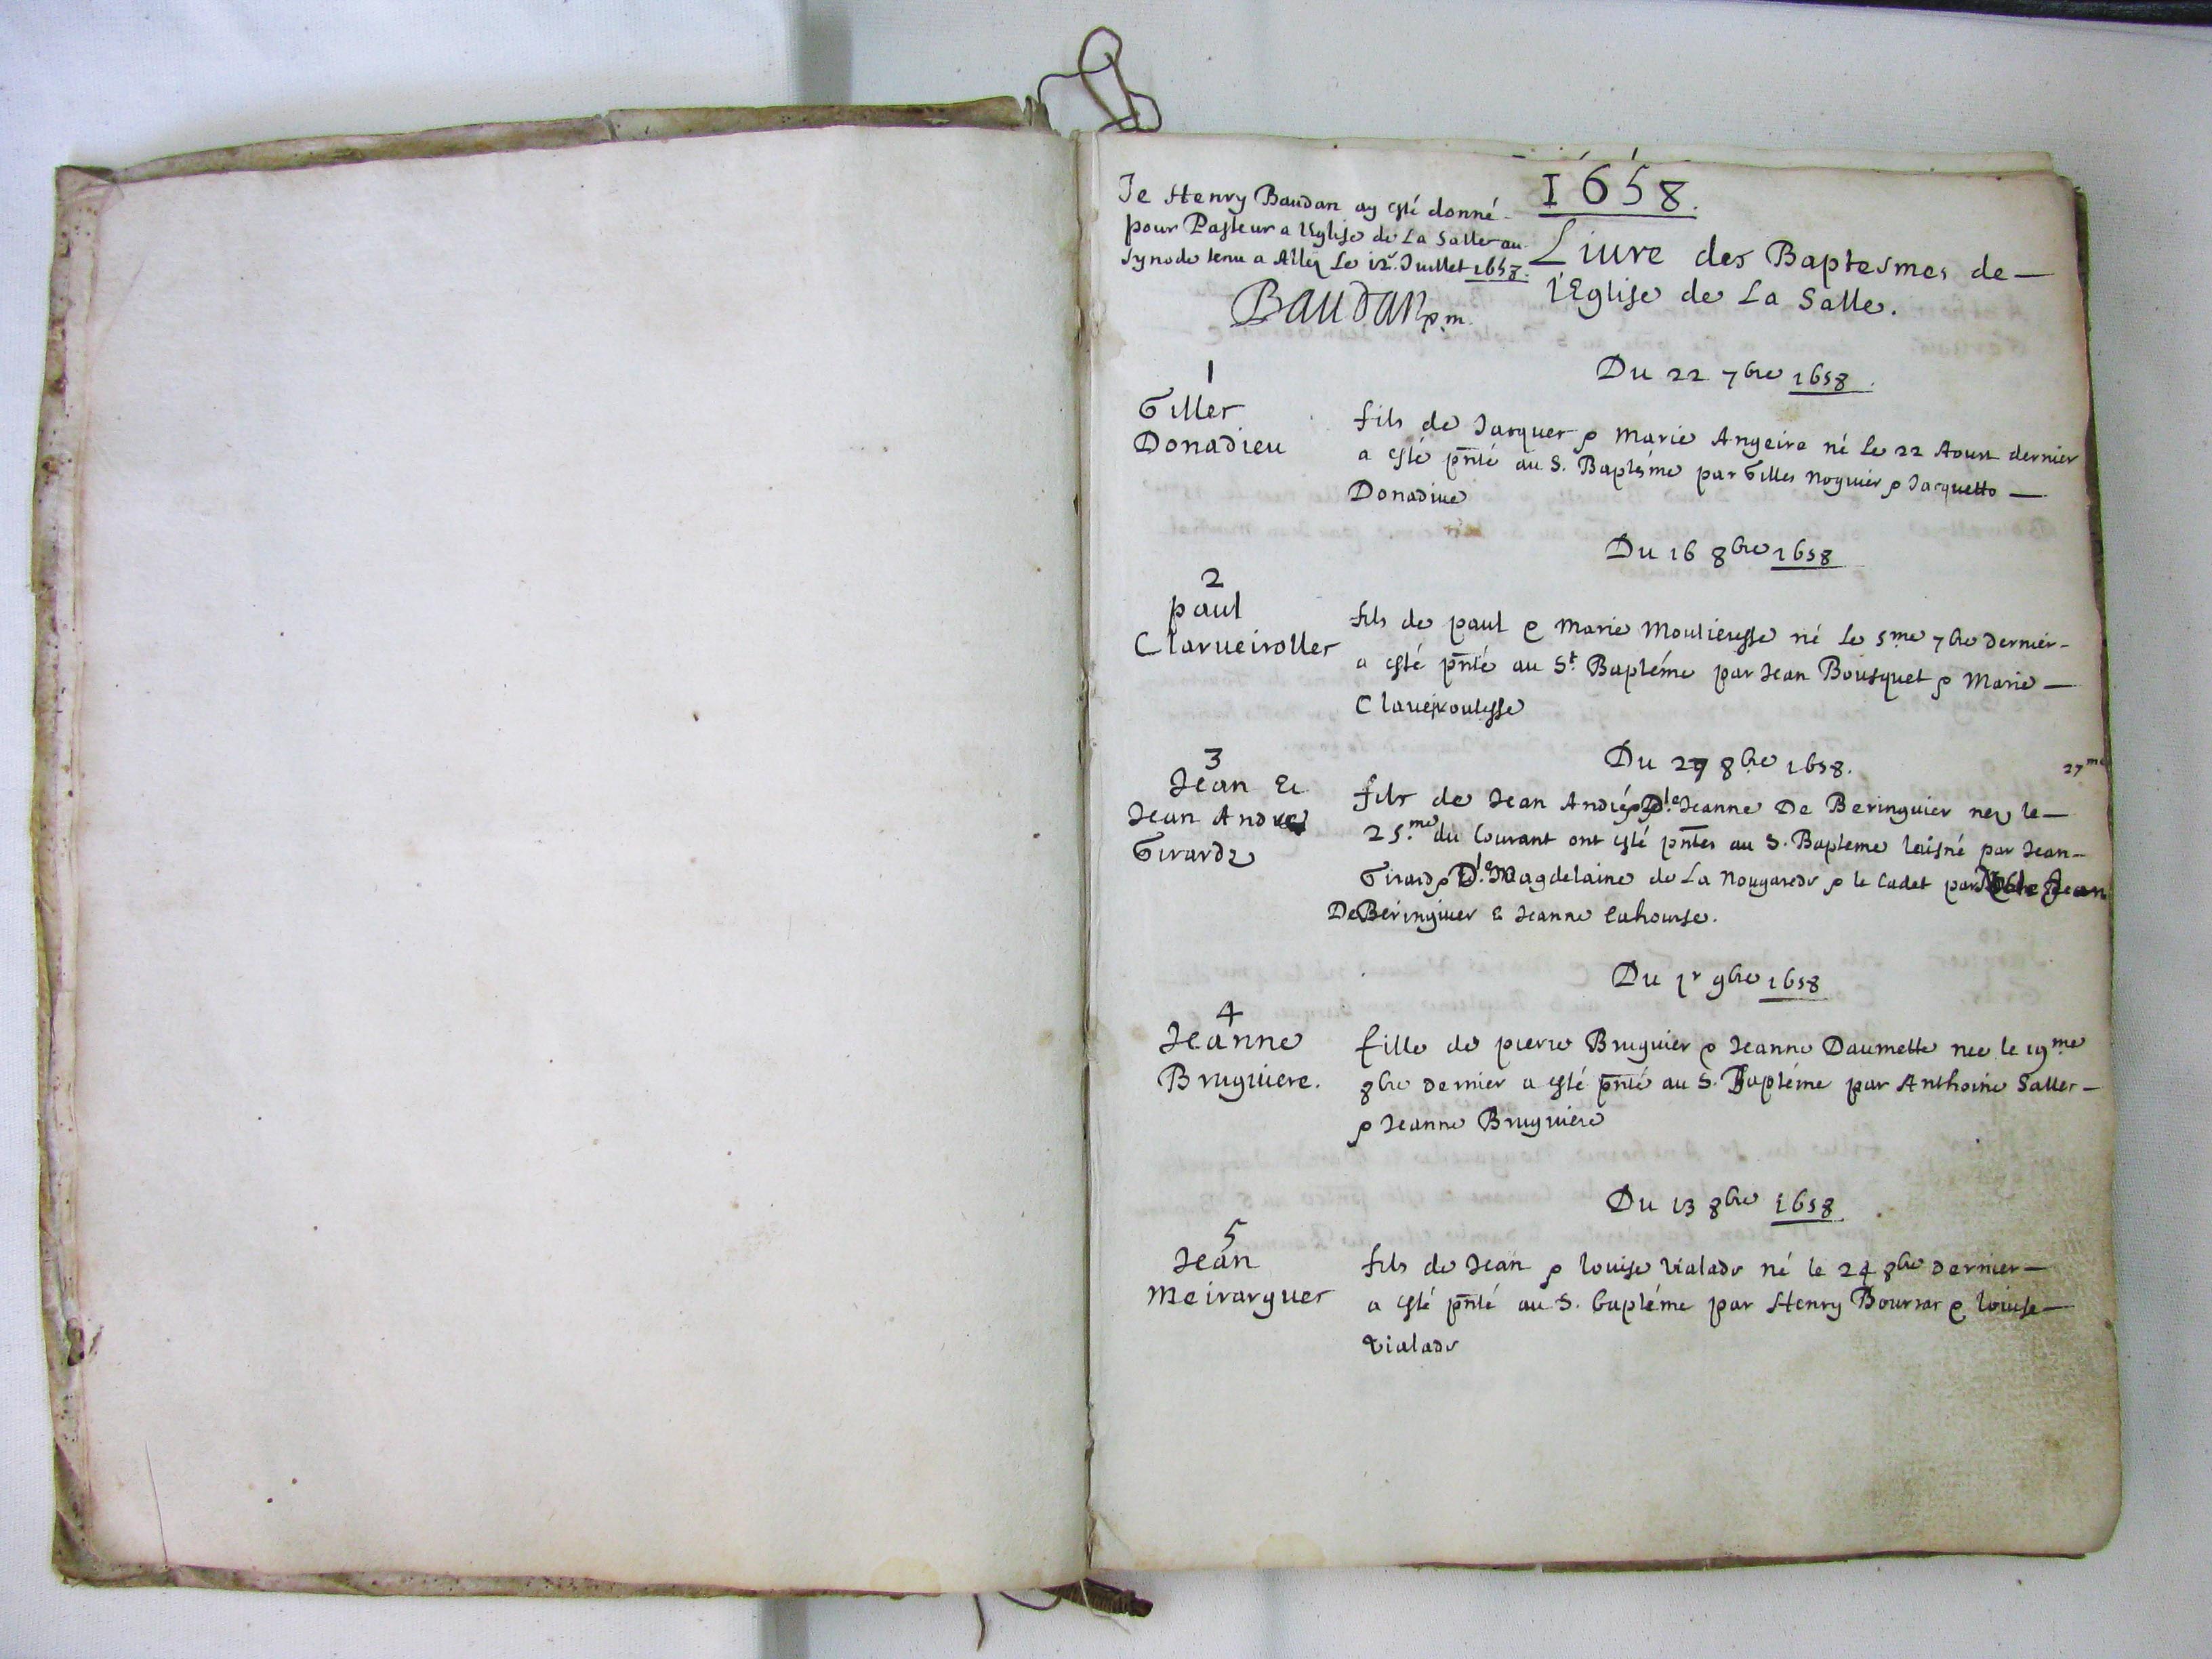 1658.
Je Henry Baudan ay esté donné
pour Pasteur a l'Eglise de La Salle au
synode tenu a Allez Le 12e. Juillet 1658.
Baudan p.m.
Livre des Baptesmes de —
l'Eglise de La Salle.
Du 22 7bre 1658.
1
Gilles
Donadieu
fils de Jacques & Marie Angeire né Le 22 Aoust dernier
a esté pnté au S. Baptésme par Gilles Noguier & Jacquette —
Donadive
Du 16 8bre 1658
2
paul
Clarueirolles
fils de paul & Marie Moulieresse né Le 5me 7bre dernier -
a esté pnté au St. Baptéme par Jean Bousquet & Marie —
Claueiroulesse
Du 27 8bre 1658.
27me
3
Jean &
Jean André
Girardz
fils de Jean André & Dle. Jeanne De Beringuier nez le —
25.me du Courant ont esté pntes au S. Bapteme laisné par Jean —
Girard & Dle. Magdelaine de La Nougarede & le Cadet par Noble Jean
De Beringuier & Jeanne
Du 1r 9bre 1658
4
Jeanne
Bruguiere.
fille de pierre Bruguier & Jeanne Daumette nee le 19me
8bre dernier a esté pnté au S. Baptéme par Anthoine Salles —
& Jeanne Bruguiere
Du 13 8bre 1658
5
Jean
Meirargues
fils de Jean & louise Vialade né le 24 8bre dernier —
a esté pnté au S. baptéme par Henry & louise —
Vialade